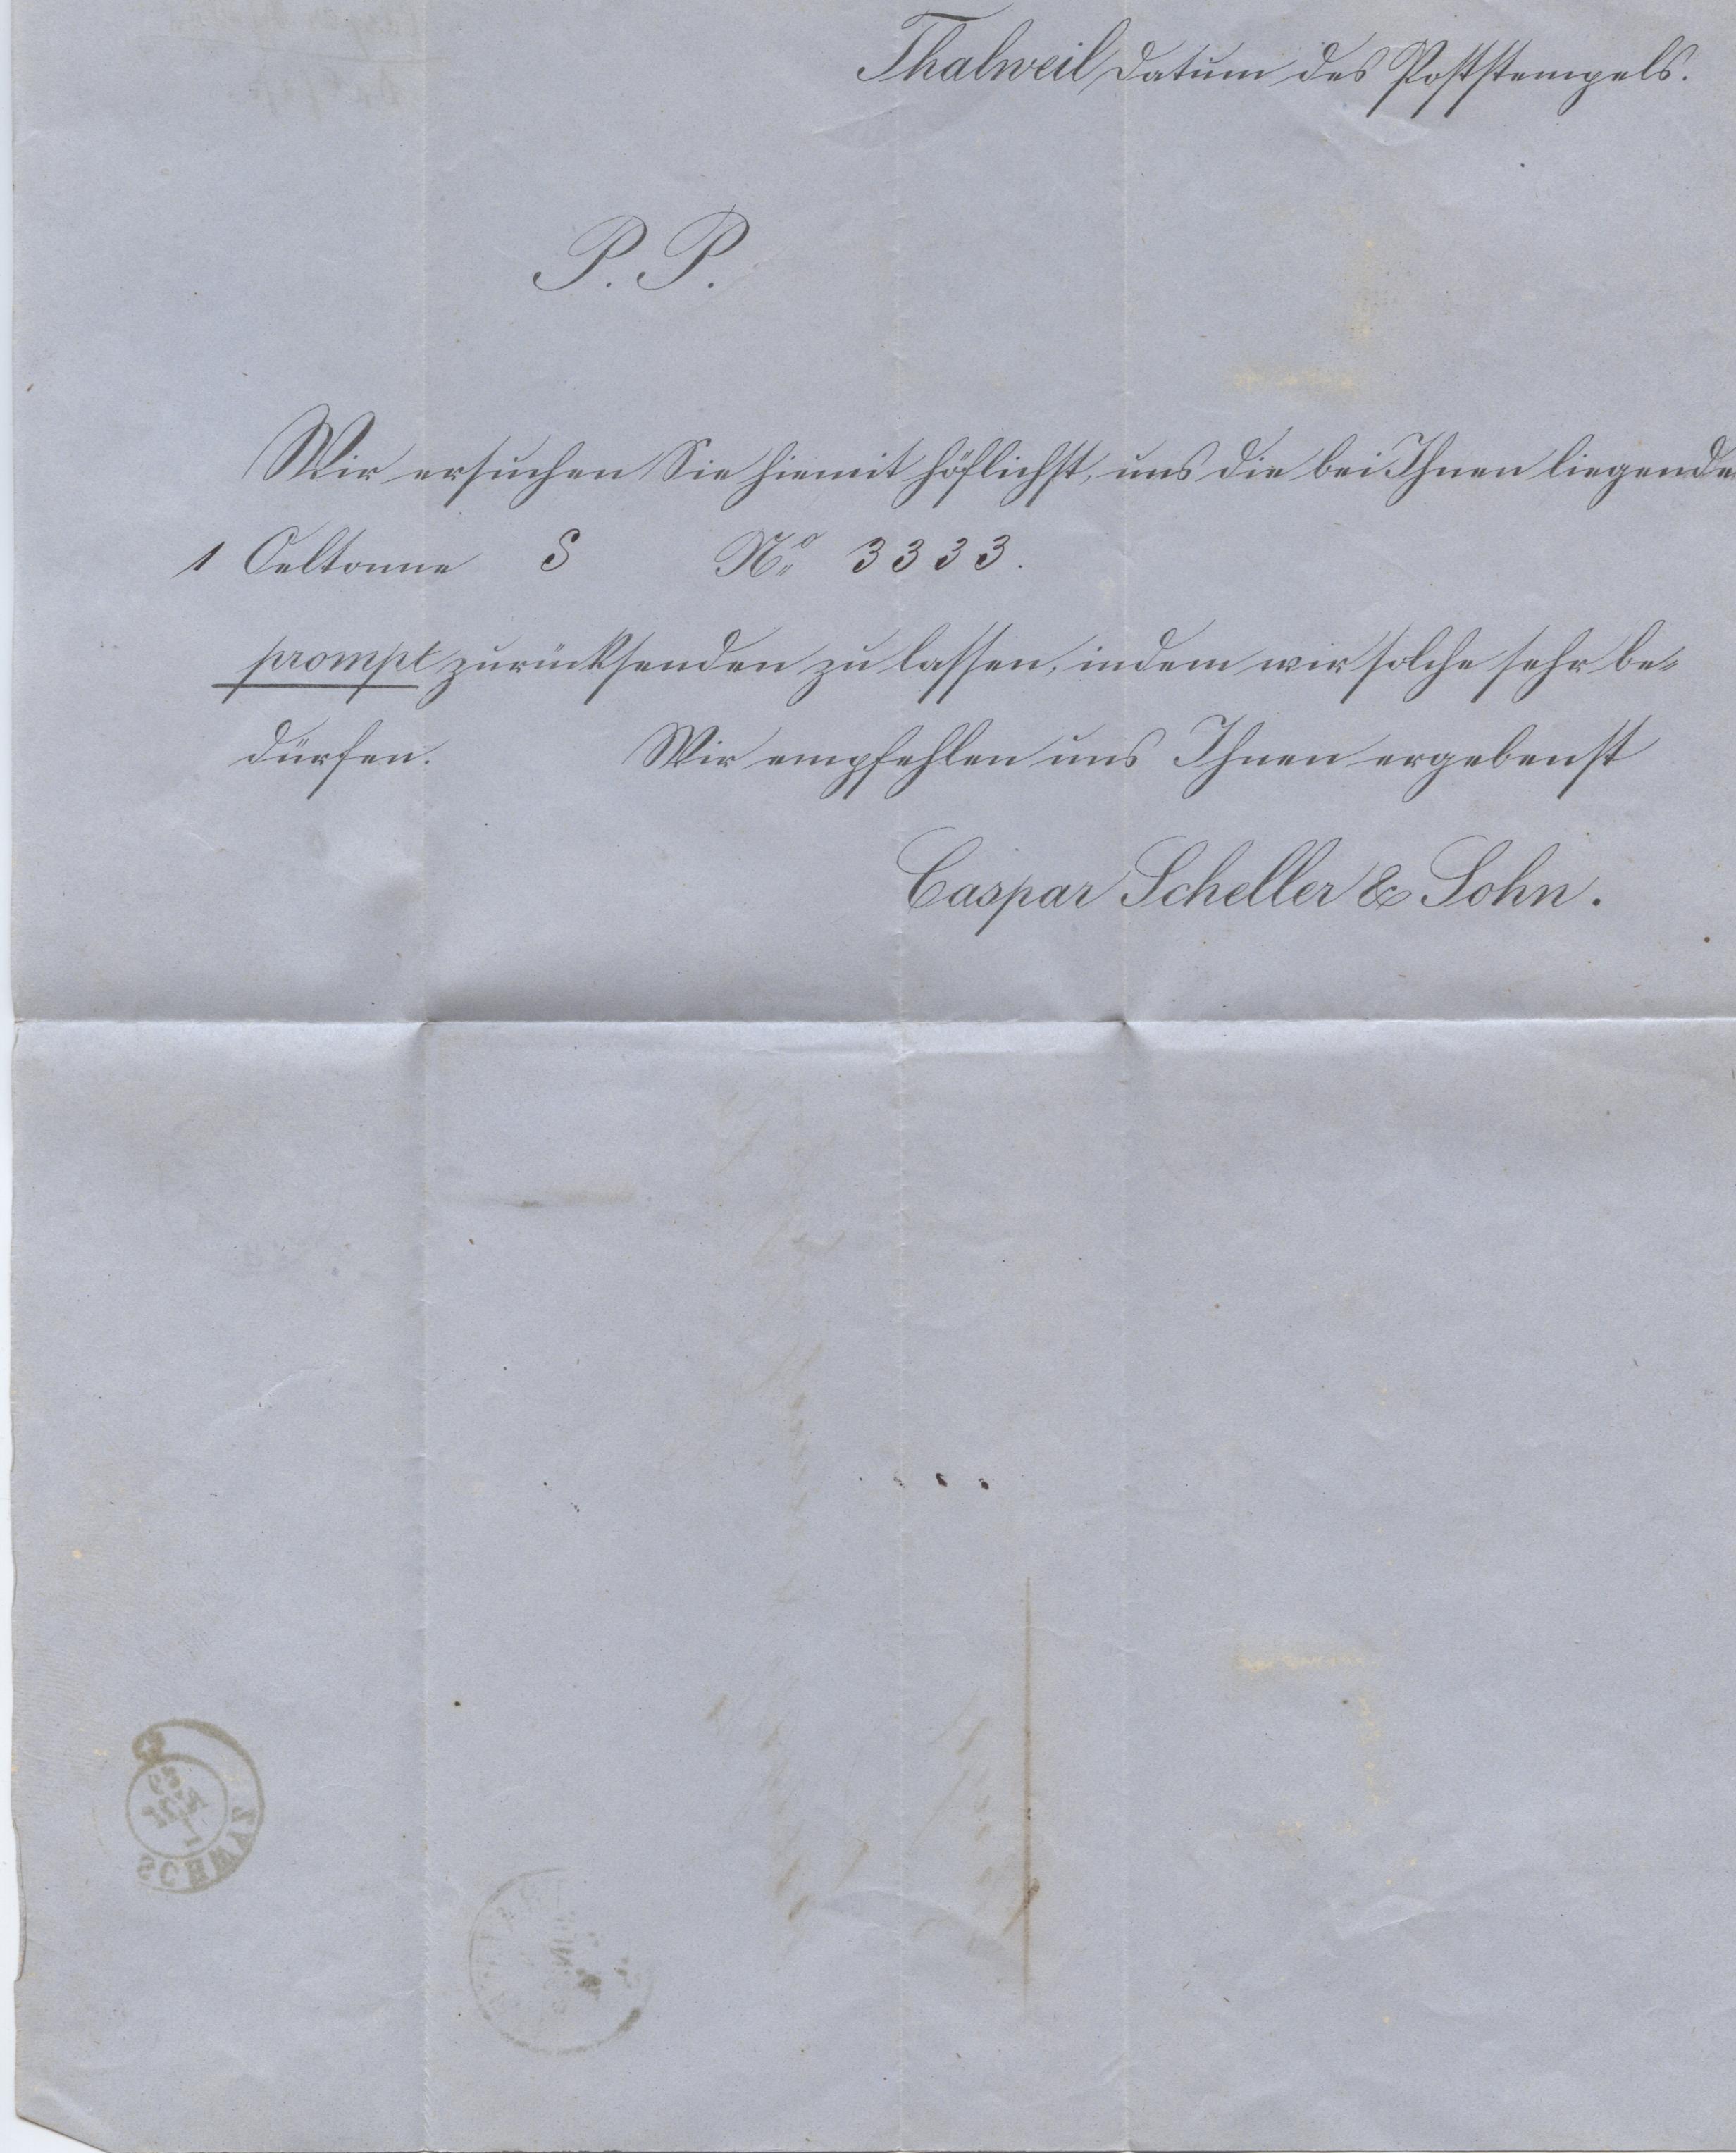 Thalweil Datum des Poststempels.
P. P.
Wir ersuchen Sie hiemit höflichst, uns die bei Ihnen liegende
1 Oeltonne S No 3333.
prompt zurücksenden zu lassen, indem wir solche sehr be-
dürfen. Wir empfehlen uns Ihnen ergebenst
Caspar Scheller & Sohn.
SCHWYZ